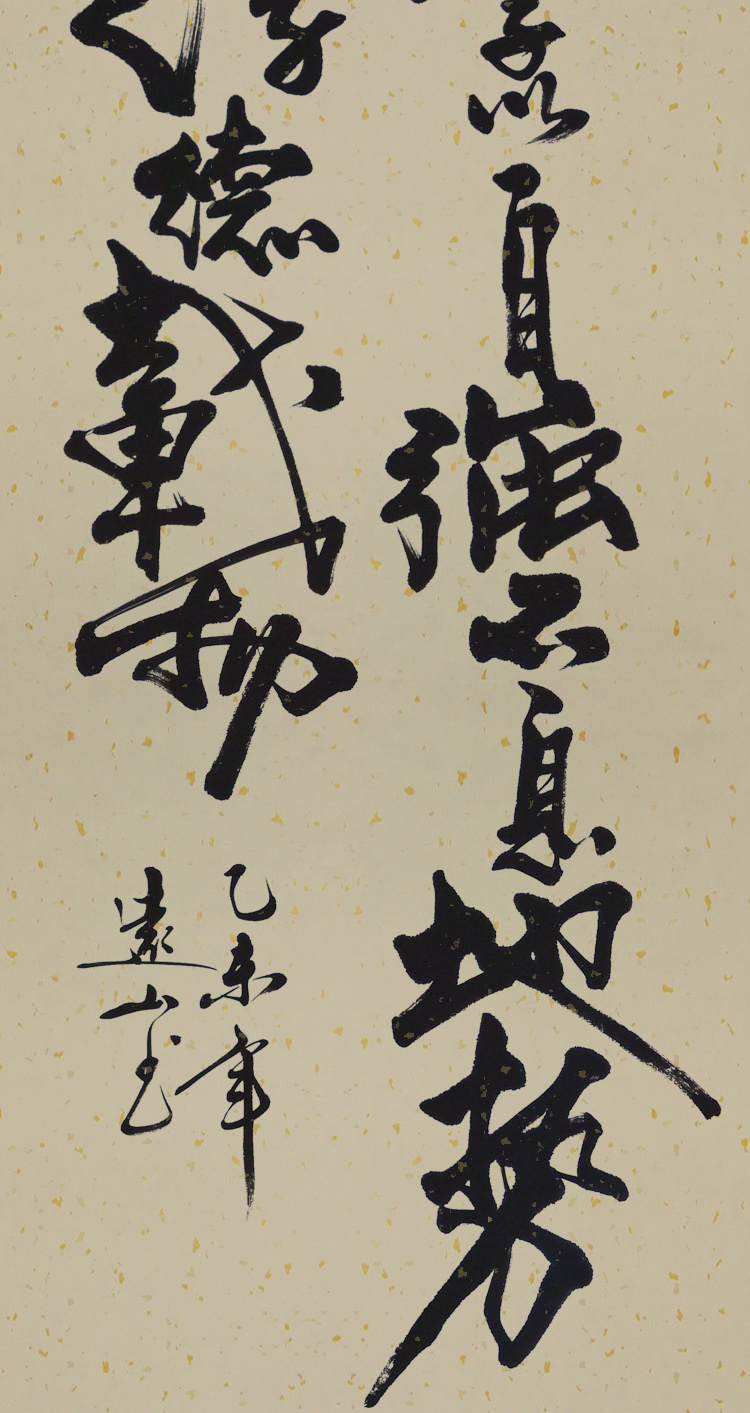 以自强不息地势
厚德载物
乙未年
远山书